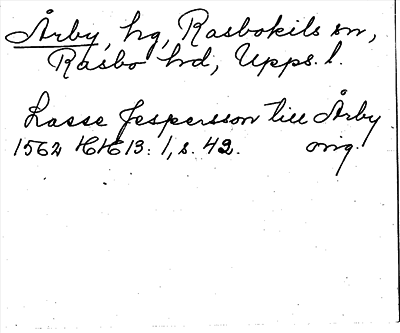 Årby, hg, Rasbokils sn,
Rasbo hd, Upps. l.
Lasse Jespersson till Årby
1562 HH 13: 1, s. 42. orig.